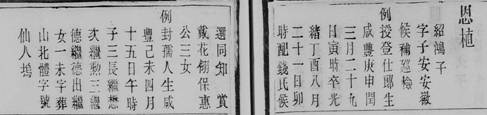 恩植
紹鴻子
字子安安徽
候補巡檢
例授登仕郎生
咸豐庚申閏
三月二十九
日寅時卒光
緒丁酉八月
二十一日卯
時配錢氏候
選同知賞
戴花翎保惠
公三女
例封孺人生咸
豐己未四月
十五日午時
子三長繼懋
次繼勲三繼
德繼德出繼
女一未字葬
山北體字號
仙人塢